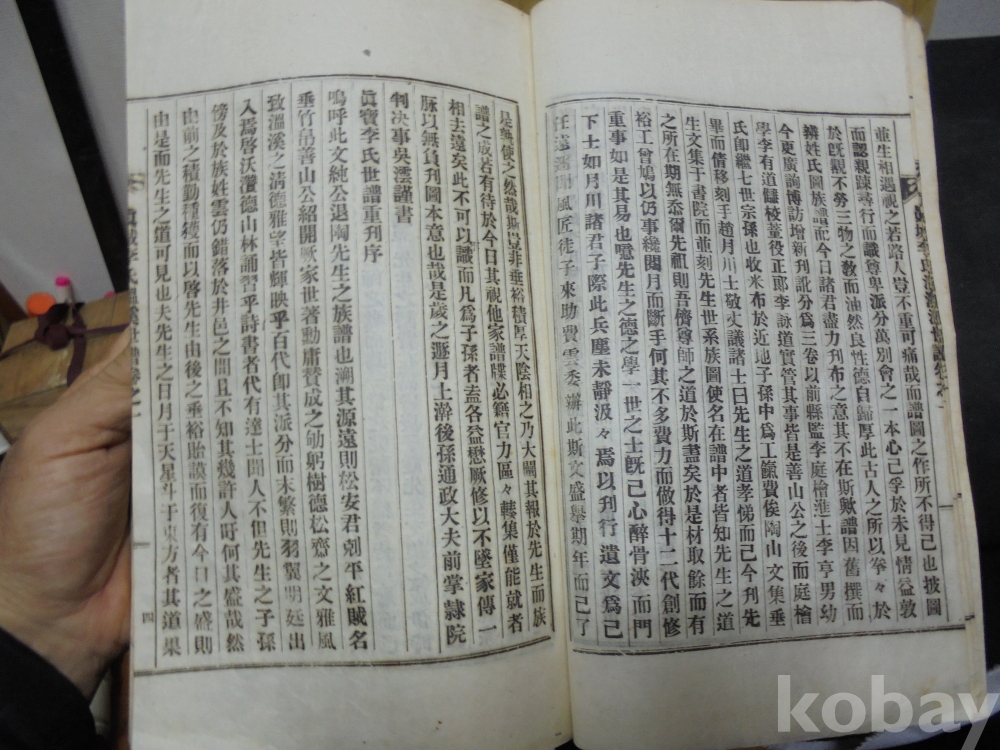 並生相遇視之若路人豈不重可痛哉而譜圖之作所不得已也披圖
而認親踈尋行而識尊卑派分萬別會之一本心已孚於未見情益敦
於旣覿不勞三物之敎而油然良性德自歸厚此古人之所以拳々於
辨姓氏圖族譜而今日諸君盡力刊布之意其不在斯歟譜因舊撰而
今更廣詢博訪增新刊訛分爲三卷以前縣監李庭檜進士李亨男幼
學李有道讎校董役正郞李詠道實管其事皆是善山公之後而庭檜
氏卽繼七世宗孫也收米布於近地子孫中爲工餼費俟陶山文集垂
畢而倩移刻手趙月川士敬丈議諸士曰先生之道孝悌而已今刊先
生文集于書院而並刻先生世系族圖使名在譜中者皆知先生之道
之所在期無忝爾先祖則吾儕尊師之道於斯盡矣於是材取餘而有
裕工曾鳩以仍事纔閱月而斷手何其不多費力而做得十二代創修
重事如是其易也噫先生之德之學一世之士旣已心醉骨浹而門
下士如月川諸君子際此兵塵未靜汲々焉以刊行遺文爲已
任遠邇聞風匠徒子來助費雲委濟此斯文盛擧期年而已了
是孰使之然哉斯豈非垂裕積厚天陰相之乃大闡其報於先生而族
譜之成若有待於今日其視他家譜牒必籍官力區々轃集僅能就者
相去遠矣此不可以識而凡爲子孫者盍各益懋厥修以不墜家傳一
脉以無負刊圖本意也哉是歲之遯月上澣後孫通政大夫前掌隷院
判决事吳澐謹書
眞寶李氏世譜重刊序
嗚呼此文純公退陶先生之族譜也溯其源遠則松安君剋平紅賊名
垂竹帛善山公紹開厥家世著勳庸贊成之劬躬樹德松齋之文雅風
致溫溪之淸德雅望皆輝映乎百代卽其派分而末繁則羽翼明廷出
入焉啓沃瓚德山林誦習乎詩書者代有達士聞人不但先生之子孫
傍及於族姓雲仍錯落於井邑之間且不知其幾許人旴何其盛哉然
由前之積勤種穫而以啓先生由後之垂裕貽謨而復有今日之盛則
由是而先生之道可見也夫先生之日月于天星斗于東方者其道果
四